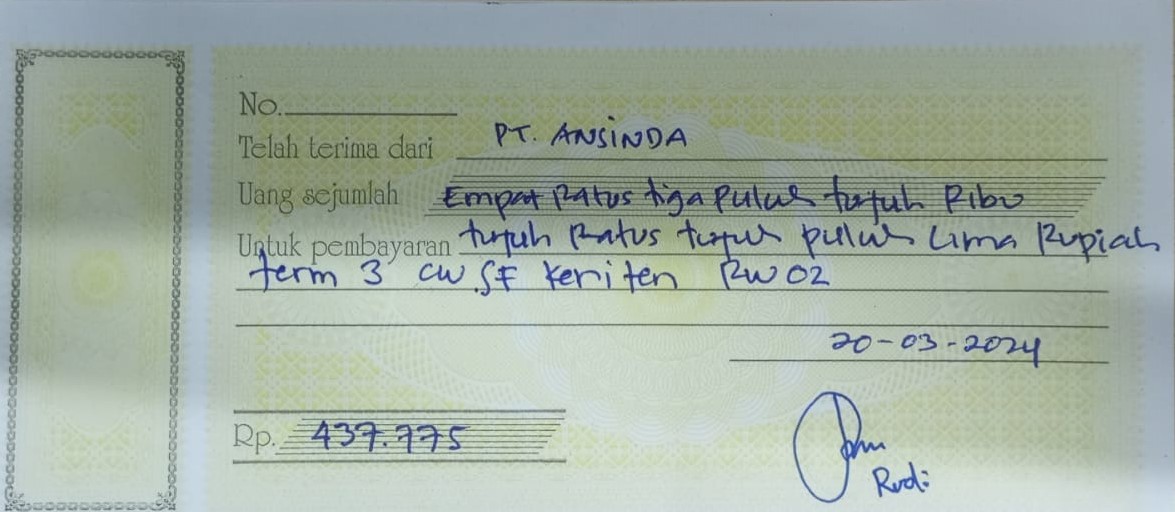 No.
Telah terima dari PT. ANSINDA
Uang sejumlah Empat Ratus tiga Puluh tujuh Ribu
Untuk pembayaran tujuh Ratus tujuh puluh Lima Rupiah
term 3 CW SF Keniten RW 02
20-03-2024
Rp. 437.775
Rudi